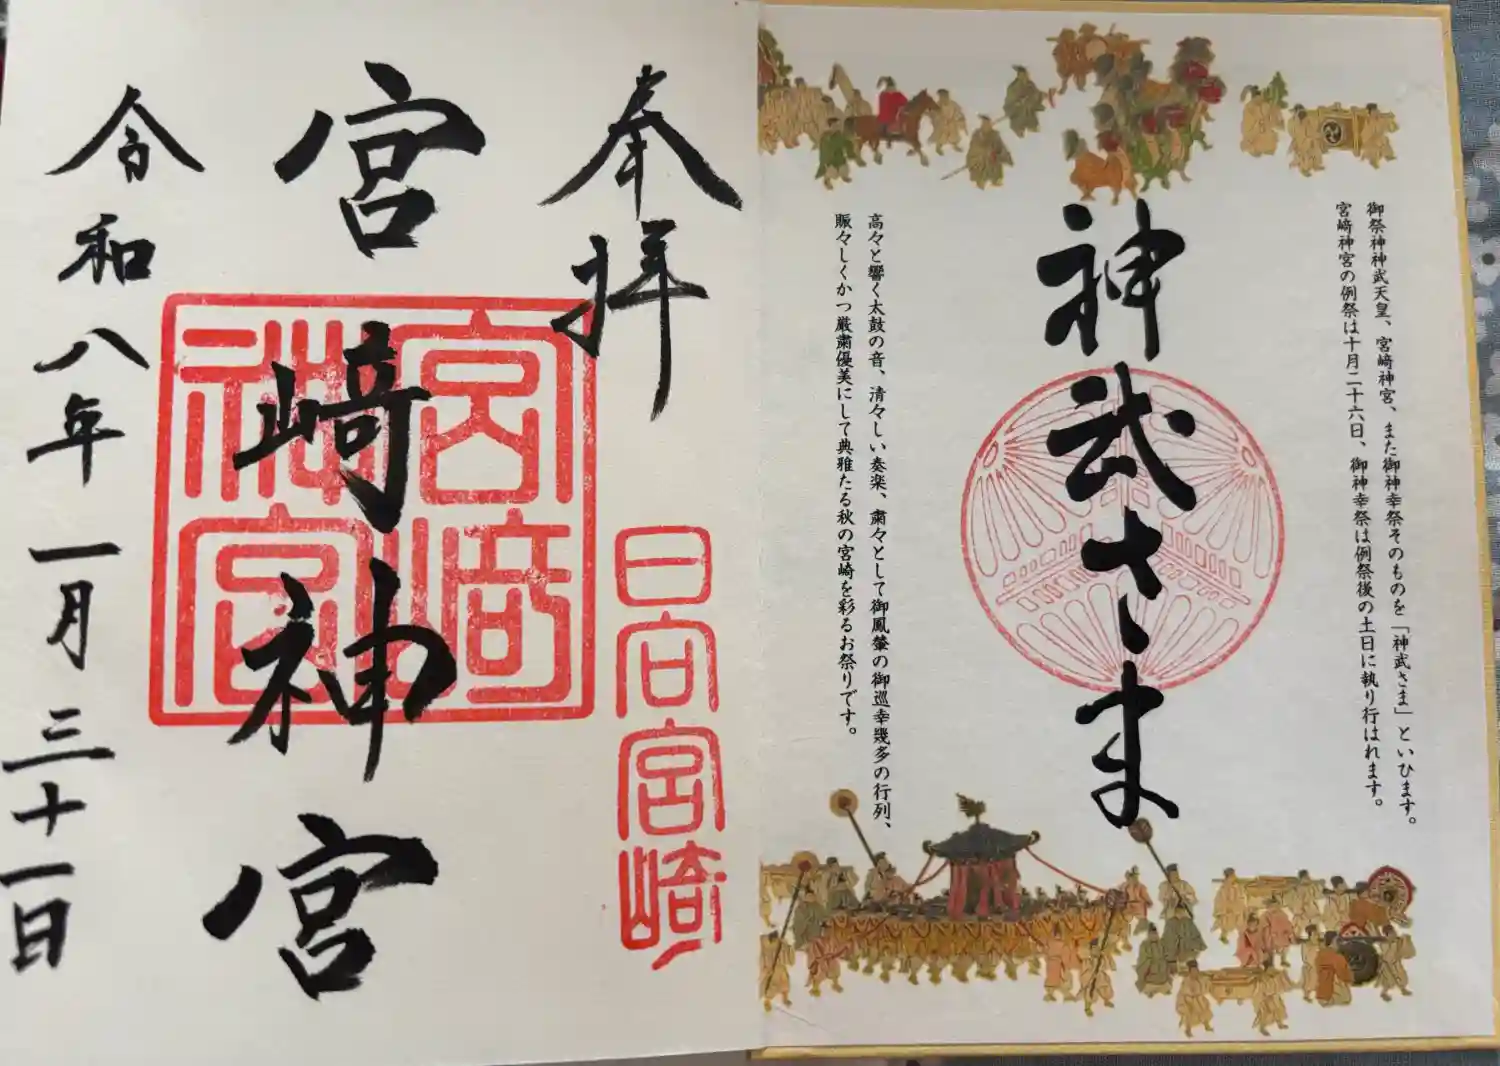 御祭神神武天皇、宮﨑神宮、また御神幸祭そのものを「神武さま」といひます。
宮﨑神宮の例祭は十月二十六日、御神幸祭は例祭後の土日に執り行はれます。
神武さま
高々と響く太鼓の音、清々しい奏楽、粛々として御鳳輦の御巡幸幾多の行列、
賑々しくかつ厳粛優美にして典雅たる秋の宮崎を彩るお祭りです。
奉拝
日向宮﨑
宮﨑神宮
宮﨑神宮
令和八年一月三十一日